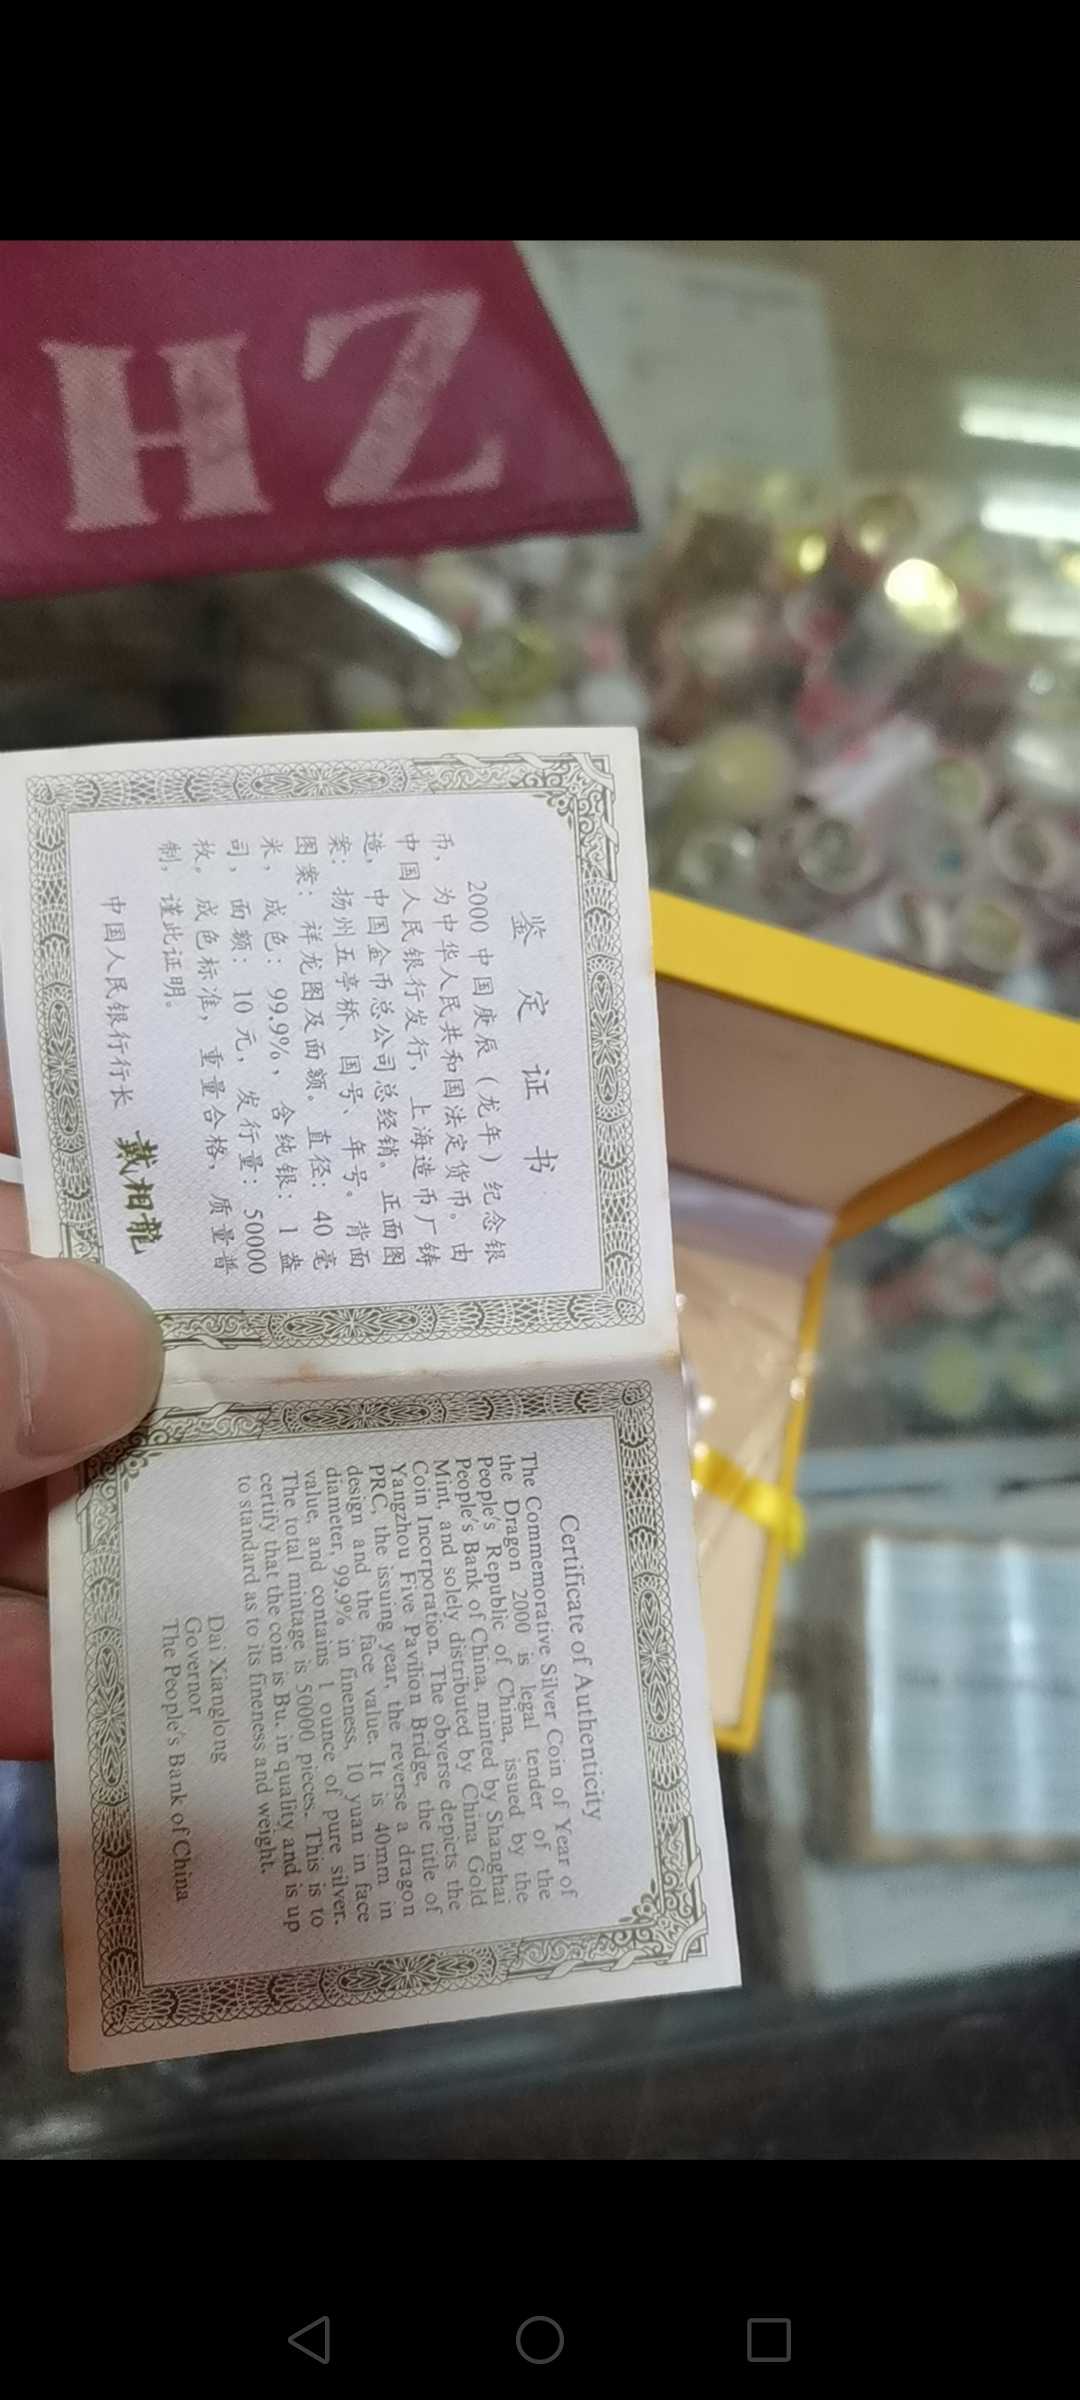 HZ
鉴定证书
2000 中国庚辰（龙年）纪念银
币，为中华人民共和国法定货币。由
中国人民银行发行，上海造币厂铸
造，中国金币总公司总经销。正面图
案：扬州五亭桥、国号、年号。背面
图案：祥龙图及面额。直径：40 毫
米，成色：99.9%，含纯银：1 盎
司，面额：10 元，发行量：50000
枚。成色标准，重量合格，质量普
制，谨此证明。
中国人民银行行长 戴相龙
Certificate of Authenticity
The Commemorative Silver Coin of Year of
the Dragon 2000 is legal tender of the
People's Republic of China, issued by the
People's Bank of China, minted by Shanghai
Mint, and solely distributed by China Gold
Coin Incorporation. The obverse depicts the
Yangzhou Five Pavilion Bridge, the title of
PRC, the issuing year, the reverse a dragon
design and the face value. It is 40mm in
diameter, 99.9% in fineness, 10 yuan in face
value, and contains 1 ounce of pure silver.
The total mintage is 50000 pieces. This is to
certify that the coin is Bu. in quality and is up
to standard as to its fineness and weight.
Dai Xianglong
Governor
The People's Bank of China